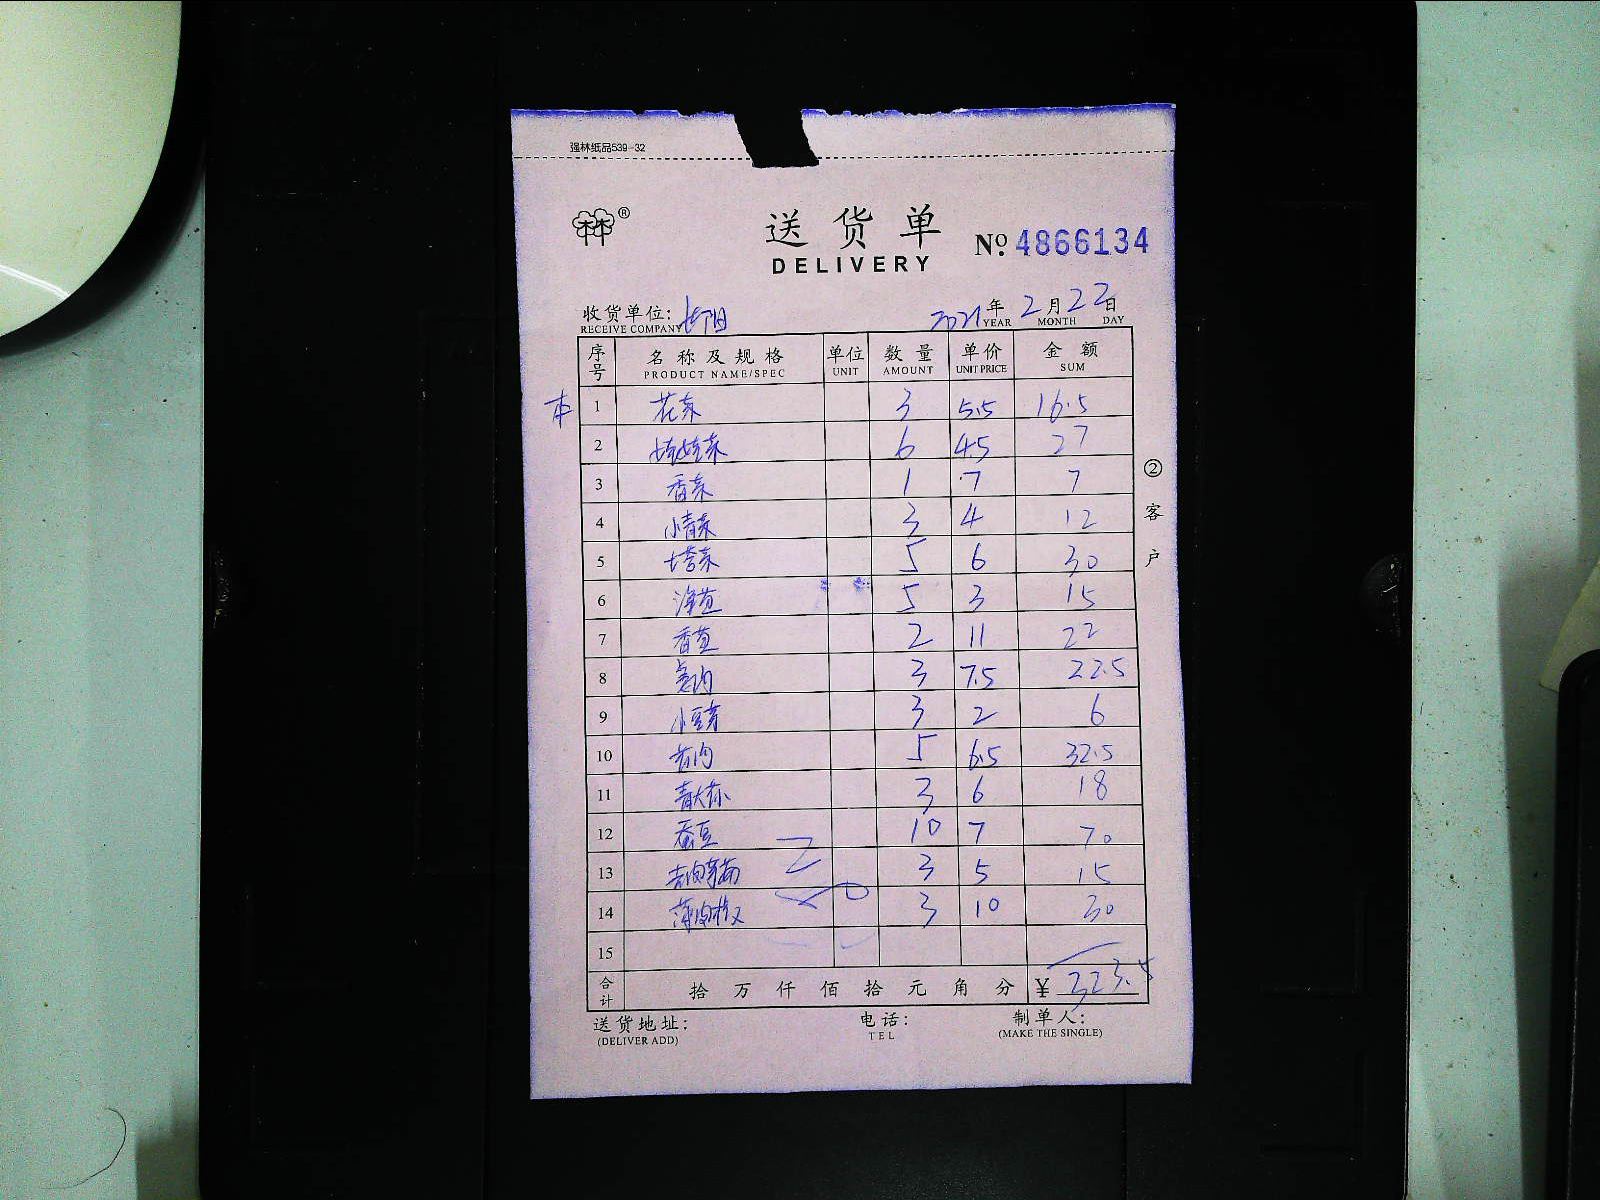 强林纸品539-32
林林 ®
送货单
DELIVERY
No. 4866134
收货单位: 2021年2月22日
RECEIVE COMPANY YEAR MONTH DAY
序号 名称及规格 单位 数量 单价 金额
PRODUCT NAME/SPEC UNIT AMOUNT UNIT PRICE SUM
本 1 花菜 3 5.5 16.5
2 娃娃菜 6 4.5 27
3 香菜 1 7 7
4 小青菜 3 4 12
5 塔菜 5 6 30
6 5 3 15
7 香 2 11 22
8 3 7.5 22.5
9 小豆芽 3 2 6
10 5 6.5 32.5
11 青大 3 6 18
12 蚕豆 10 7 70
13 3 5 15
14 薄皮椒 3 10 30
15
合计 拾万仟佰拾元角分 ¥ 323.5
送货地址: 电话: 制单人:
(DELIVER ADD) TEL (MAKE THE SINGLE)
②客户